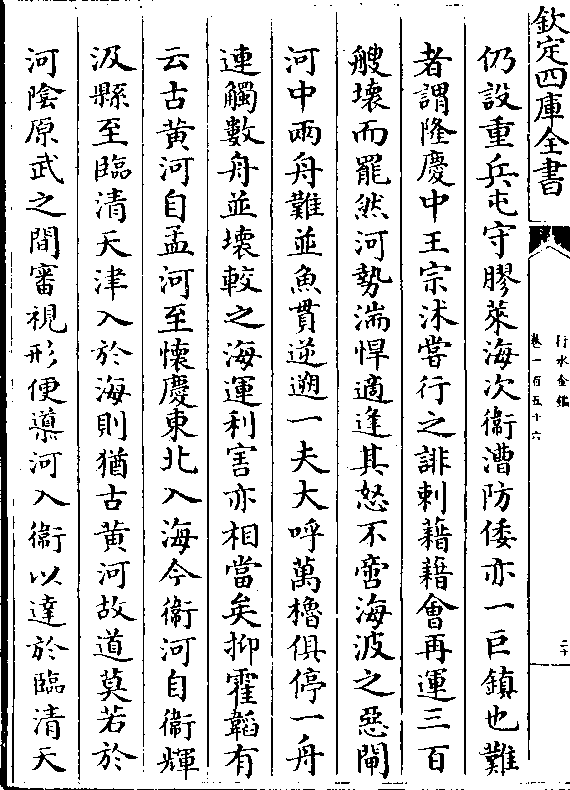 欽定四庫全書
行水金鑑
卷一百五十六
二十
仍設重兵屯守膠萊海次衞漕防倭亦一巨鎮也難
者謂隆慶中王宗沭嘗行之誹刺藉藉會再運三百
艘壞而罷然河勢湍悍適逢其怒不啻海波之惡閘
河中兩舟難並魚貫逆遡一夫大呼萬櫓俱停一舟
連觸數舟並壞較之海運利害亦相當矣抑霍韜有
云古黃河自孟河至懷慶東北入海今衞河自衞輝
汲縣至臨清天津入於海則猶古黃河故道莫若於
河陰原武之間審視形便導河入衞以達於臨清天